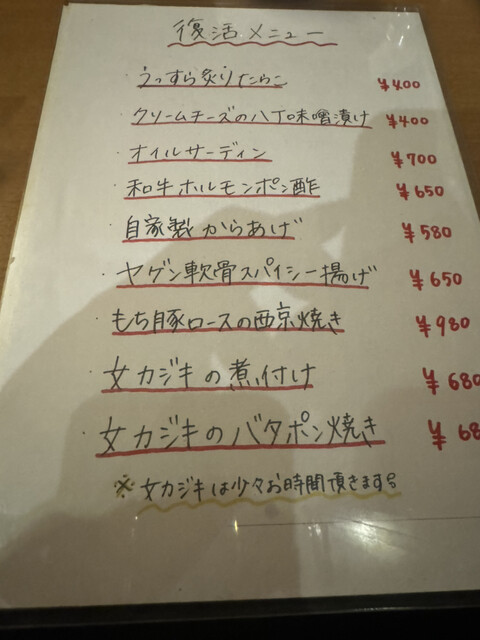 復活メニュー
・うっすら炙りたらこ ¥400
・クリームチーズの八丁味噌漬け ¥400
・オイルサーディン ¥700
・和牛ホルモンポン酢 ¥650
・自家製からあげ ¥580
・ヤゲン軟骨スパイシー揚げ ¥650
・もち豚ロースの西京焼き ¥980
・女カジキの煮付け ¥680
・女カジキのバタポン焼き ¥68
※女カジキは少々お時間頂きます。